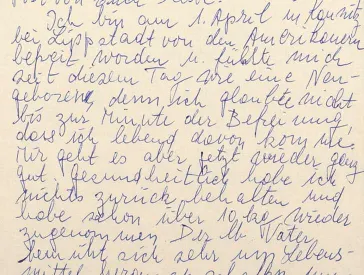 Ich bin am 1. April in Kaunitz
bei Lippstadt von den Amerikanern
befreit worden u. fühlte mich
seit diesem Tag wie eine Neu-
geborene, denn ich glaubte nicht
bis zur Minute der Befreiung,
dass ich lebend davon komme.
Mir geht es aber jetzt wieder ganz
gut. gesundheitlich habe ich
nichts zurück behalten und
habe schon über 10 kg wieder
zugenommen. Der lb. Vater
bemüht sich sehr um Lebens-
mittel